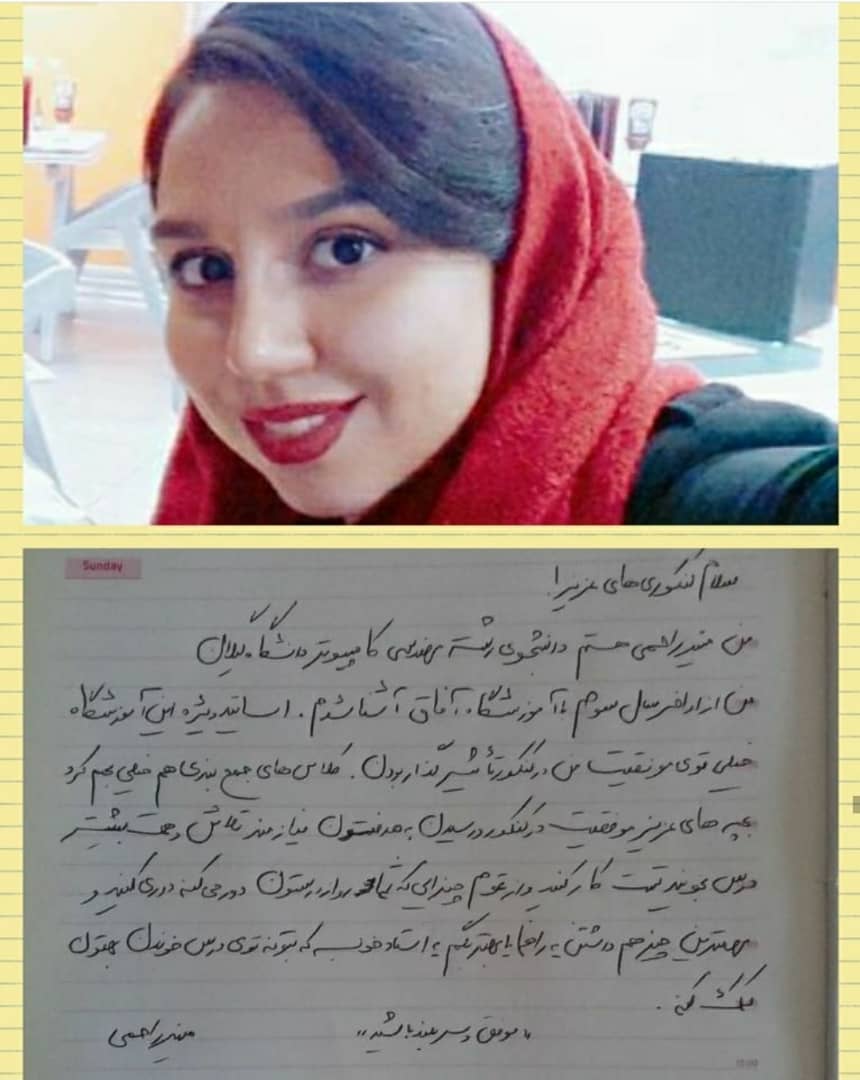 Sunday
سلام کنکوری‌های عزیز!
من هستم دانشجوی رشته مهندسی کامپیوتر دانشگاه گیلان
من از اواخر سال سوم با آموزشگاه آفاق آشنا شدم. اساتید ویژه این آموزشگاه
خیلی توی موفقیت من در کنکور تأثیر گذار بودن. کلاس‌های جمع بندی هم خیلی بهم کرد
بچه های عزیز موفقیت در کنکور و رسیدن به هدفتون نیازمند تلاش و همت بیشتر
درس بخونید تست کار کنید و از تموم چیزایی که شما رو از درستون دور می‌کنه دوری کنید و
بهترین چیز هم داشتن یه راهنما یا بهتر بگم یه استاد خوبه که بتونه توی درس خوندن بهتون
کمک کنه.
"موفق و سربلند باشید"